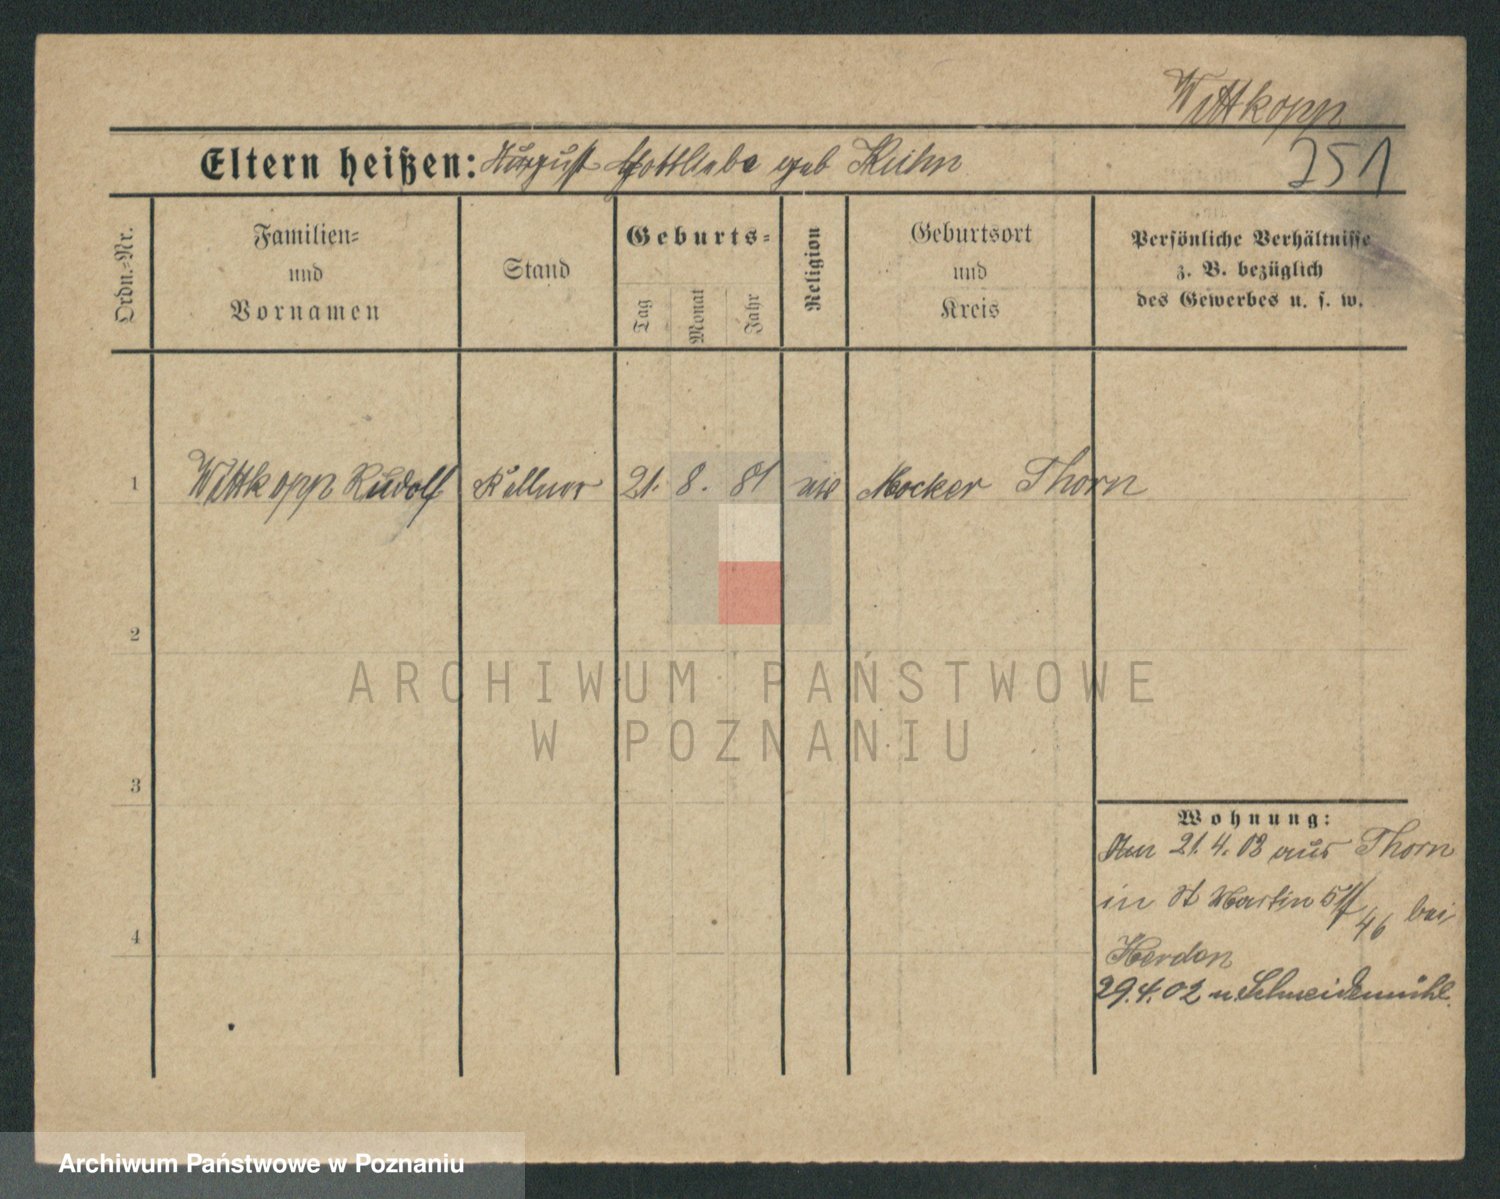 Wittkopp
Eltern heißen: August Gottliebe geb Kühn
251
Ordn.-Nr.
Familien-
und
Vornamen
Stand
Geburts-
Tag
Monat
Jahr
Religion
Geburtsort
und
Kreis
Persönliche Verhältnisse
z. B. bezüglich
des Gewerbes u. s. w.
1 Wittkopp Rudolf Kellner 21. 8. 81 Mocker Thorn
2
ARCHIWUM PAŃSTWOWE
W POZNANIU
3
Wohnung:
Am 21.4.03 aus Thorn
in St Martin 46 bei
4
Herdon
29.4.02 n. Schneidemühl.
Archiwum Państwowe w Poznaniu